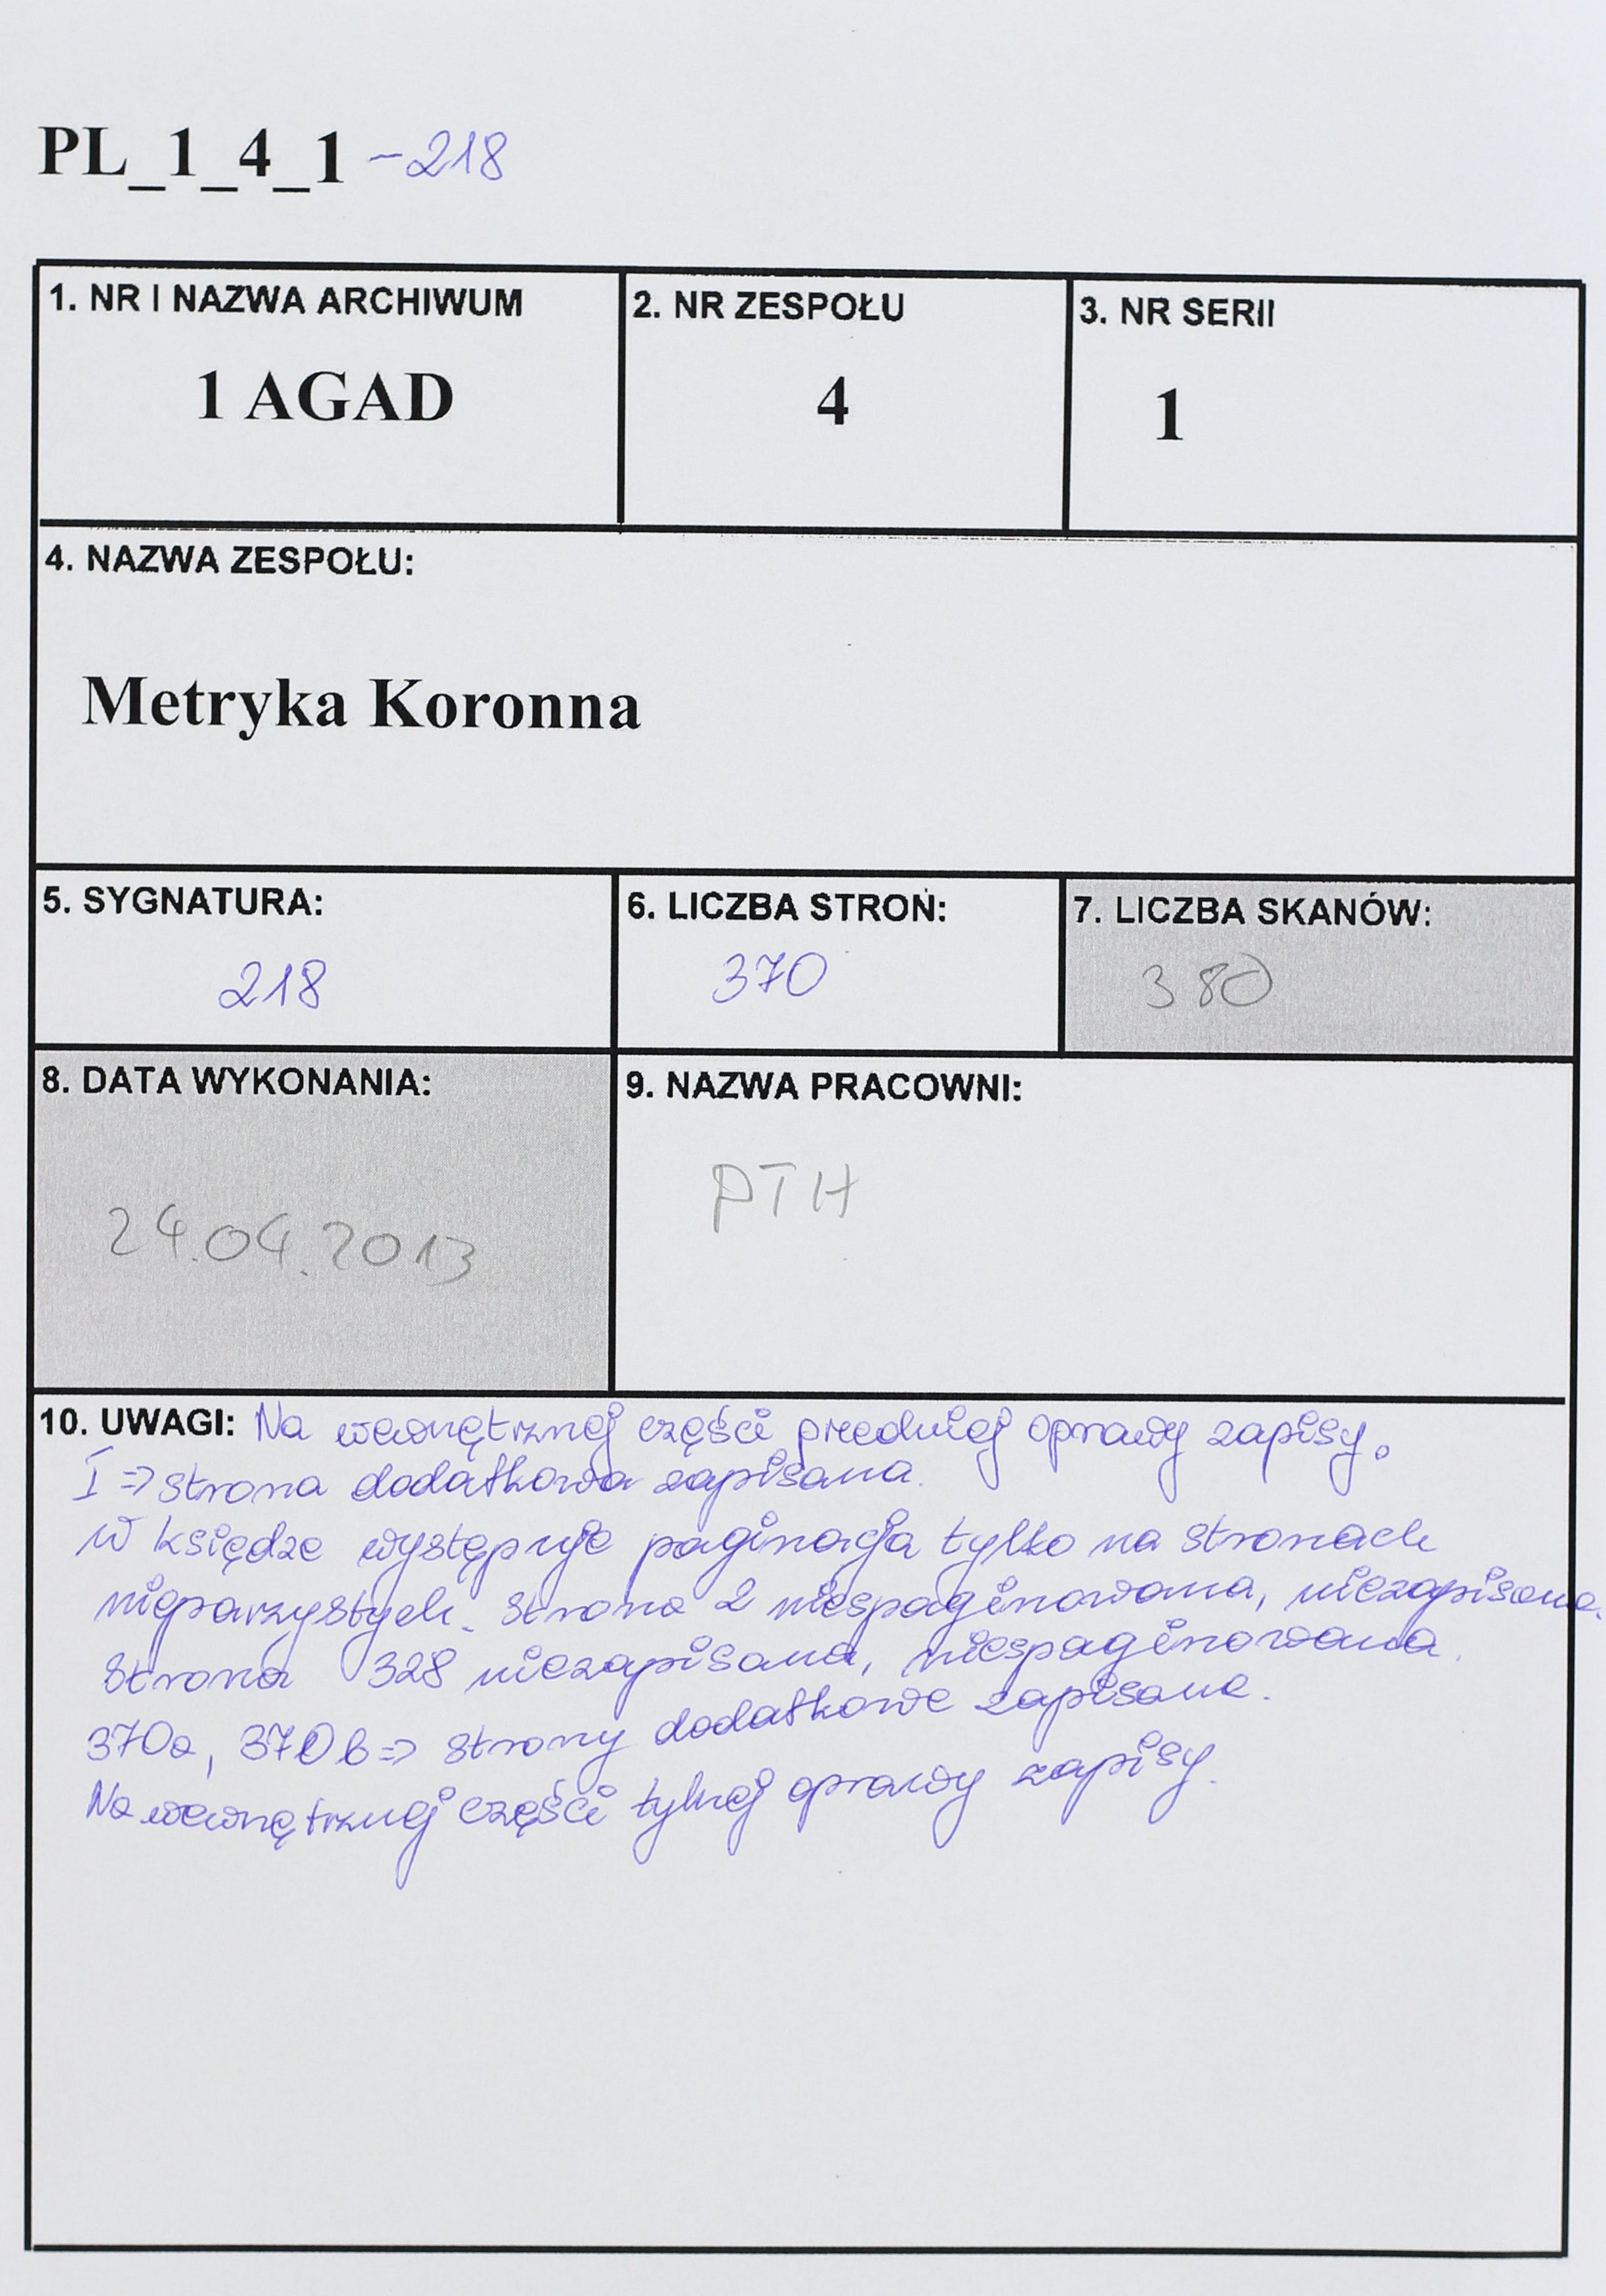 PL_1_4_1 -218
1. NR I NAZWA ARCHIWUM
1 AGAD
2. NR ZESPOŁU
4
3. NR SERII
1
4. NAZWA ZESPOŁU:
Metryka Koronna
5. SYGNATURA:
218
6. LICZBA STRON:
370
7. LICZBA SKANÓW:
380
8. DATA WYKONANIA:
24.04.2013
9. NAZWA PRACOWNI:
PTH
10. UWAGI: Na wewnętrznej części przedniej oprawy zapisy.
I => strona dodatkowa zapisana.
W księdze występuje paginacja tylko na stronach
nieparzystych. Strona 2 niespaginowana, niezapisana.
Strona 328 niezapisana, niespaginowana.
370a, 370b => strony dodatkowe zapisane.
Na wewnętrznej części tylnej oprawy zapisy.